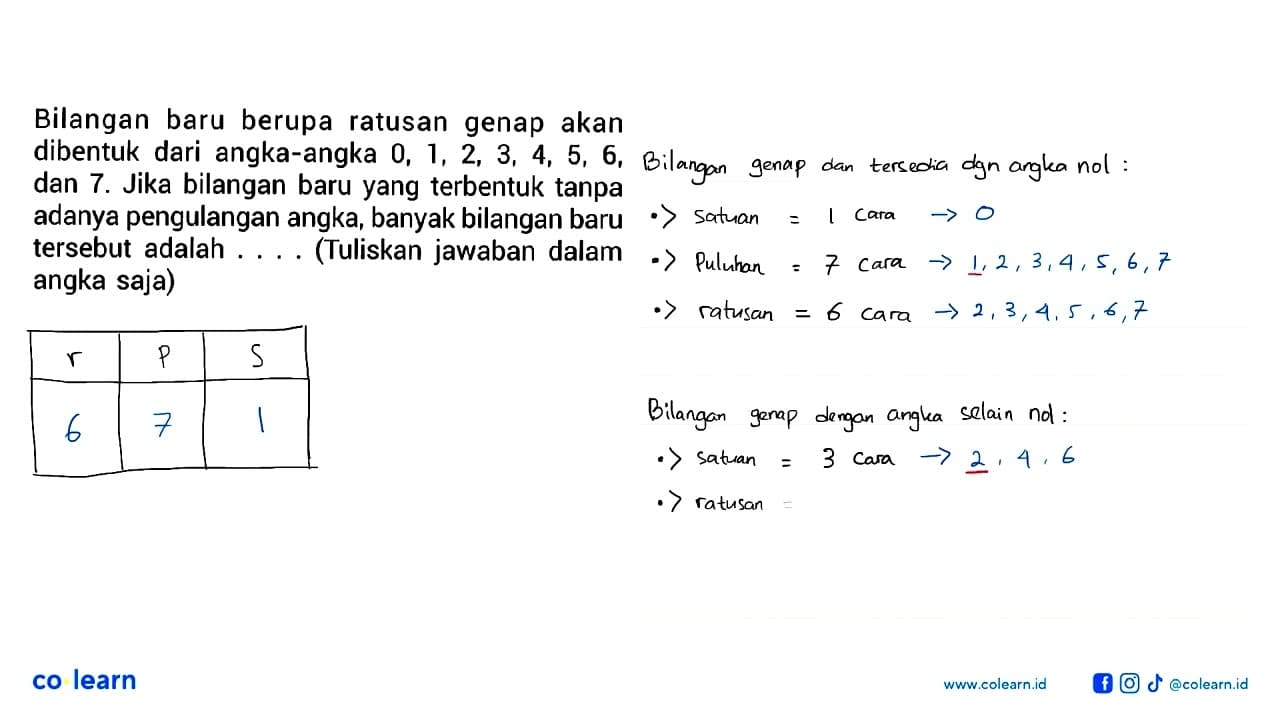 Bilangan baru berupa ratusan genap akan
dibentuk dari angka-angka 0, 1, 2, 3, 4, 5, 6,
dan 7. Jika bilangan baru yang terbentuk tanpa
adanya pengulangan angka, banyak bilangan baru
tersebut adalah . . . . (Tuliskan jawaban dalam
angka saja)
r P S
6 7 1
Bilangan genap dan tersedia dgn angka nol :
•> satuan = 1 cara → 0
•> Puluhan = 7 cara → 1, 2, 3, 4, 5, 6, 7
•> ratusan = 6 cara → 2, 3, 4, 5, 6, 7
Bilangan genap dengan angka selain nol :
•> satuan = 3 cara → 2, 4, 6
•> ratusan =
co learn
www.colearn.id
@colearn.id